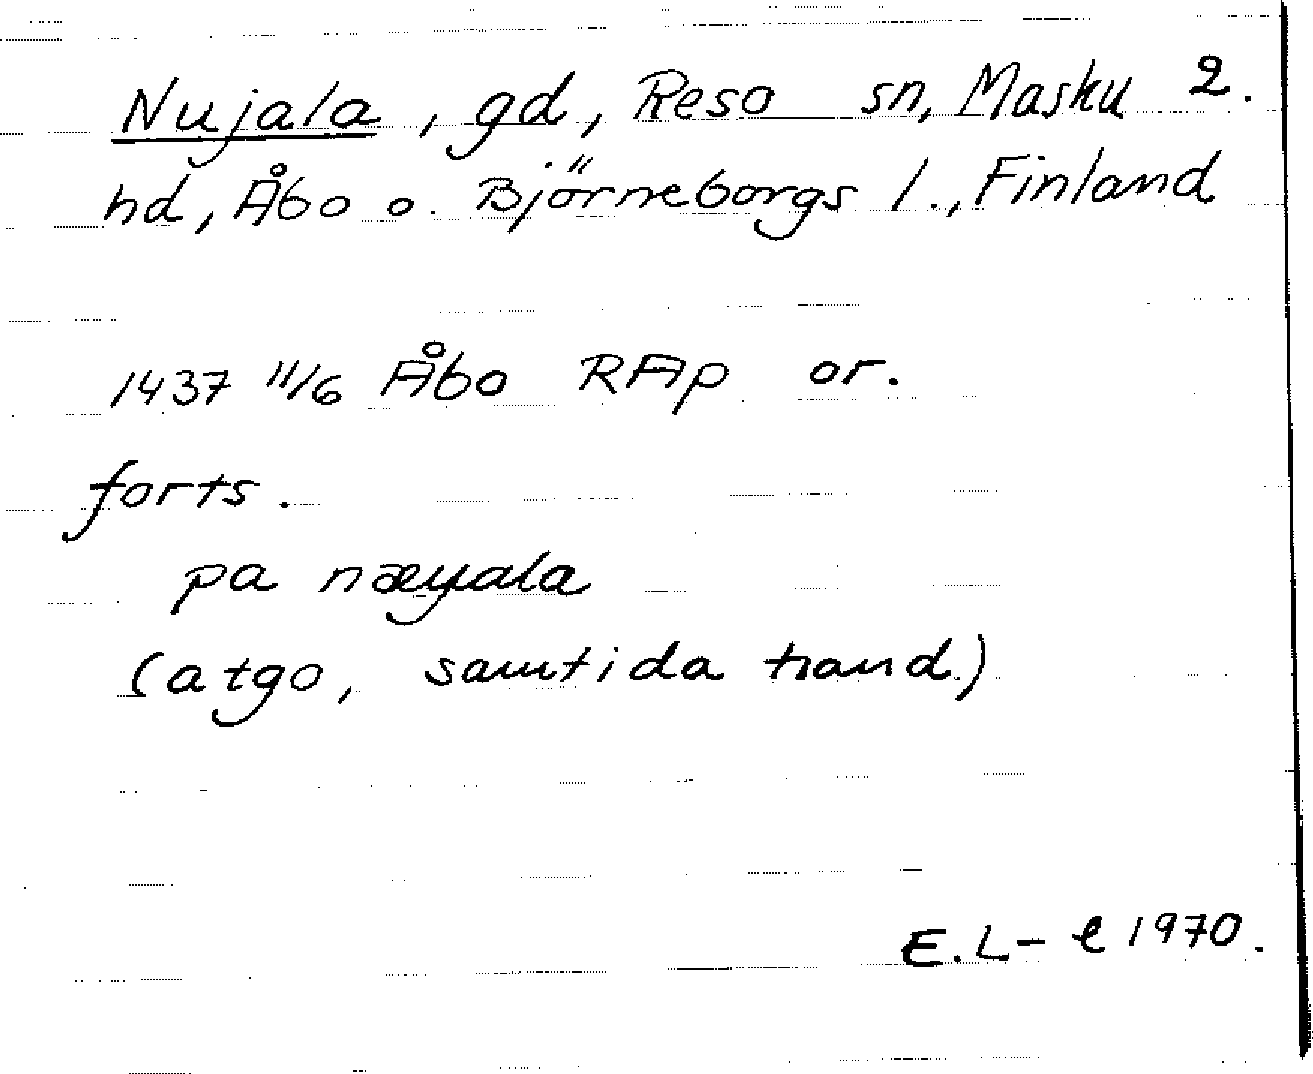 Nujala, gd, Reso sn, Masku 2.
hd, Åbo o. Björneborgs l., Finland
1437 11/6 Åbo RAp or.
forts.
pa næyala
(atgo, samtida hand)
E.L-e 1970.